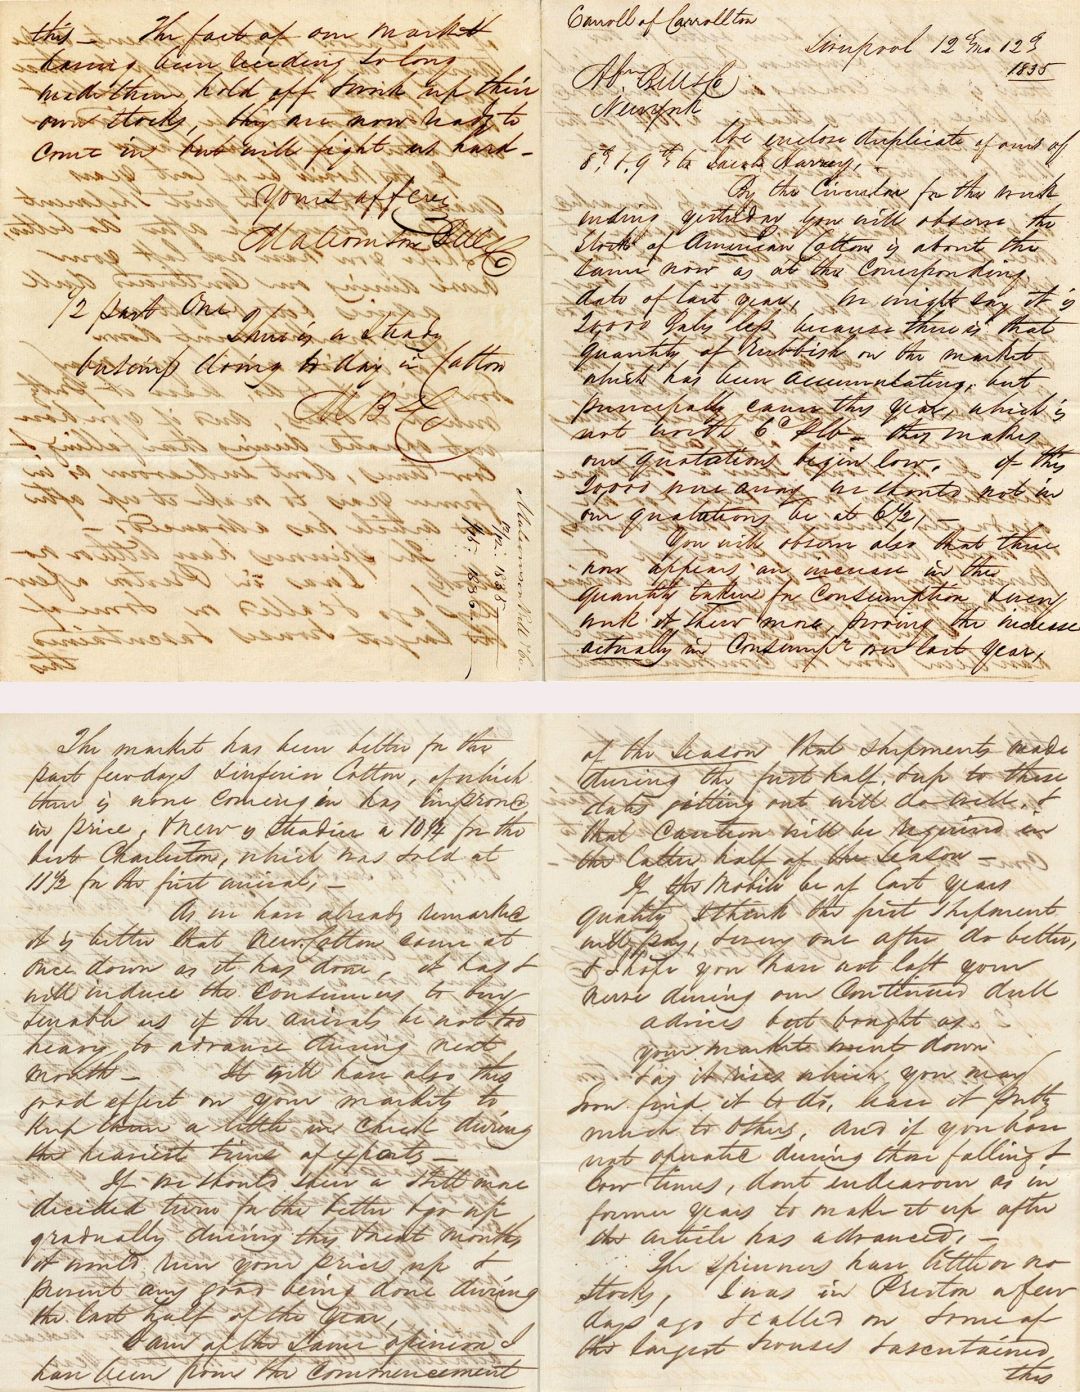 Carroll of Carrollton
Liverpool 12 mo 12
1835
Ab<sup>m</sup> Bell & Co
New York
We enclose duplicate of ours of
8th & 9th to Jacob Harvey,
By the Circular for the week
ending yesterday you will observe the
Stock of American Cottons is about the
same now as at the Corresponding
date of last year, we might say it is
20,000 Bales less because there is that
quantity of Rubbish on the market
which has been accumulating, but
principally came this year, which is
not worth 6d lb - this makes
our quotations begin low. If this
20,000 were away we should not in
our quotations be at 6½, -
You will observe also that there
now appears an increase in the
quantity taken for Consumption, every
week it shew more, proving the increase
actually in Consumpn over last year,
The market has been better for the
past few days & inferior Cotton, of which
there is none coming in has improved
in price, & new is Steadier a 10¼ for the
best Charleston, which was sold at
11½ for the first arrival, -
As we have already remarked
it is better that New Cotton came at
once down as it has done, it has &
will induce the consumers to buy
& enable us if the arrivals be not too
heavy to advance during next
month - It will have also this
good effect on your markets to
keep them a little in check during
the heaviest time of exports -
If we should shew a still more
decided turn for the better & go up
gradually during this & next months
it would run your prices up &
prevent any good being done during
the last half of the Year,
I am of the same opinion I
have been from the commencement
of the Season that shipments made
during the first half, & up to those
dates getting out will do well, &
that Caution will be required in
the latter half of the Season -
If the Mobile be of last years
quality I think the first Shipment
will pay, & every one after do better,
& I hope you have not left your
nerve during our Continued dull
advices but bought as
your market went down
& as it rises which you may
soon find it to do, leave it pretty
much to others, and if you have
not operated during these falling &
low times, dont endeavour as in
former years to make it up after
the article has advanced, -
The spinners have little or no
Stocks, I was in Preston a few
days ago & called on some of
the largest houses & ascertained
this
this - The fact of our market
having been receding so long
made them hold off & work up their
own stocks, they are now ready to
come in but will fight us hard -
Yours affec
Malcomson Bell & Co
½ past One
There is a steady
business doing to day in Cotton
M B & Co
Malcomson Bell & Co.
12/12 1835
1836